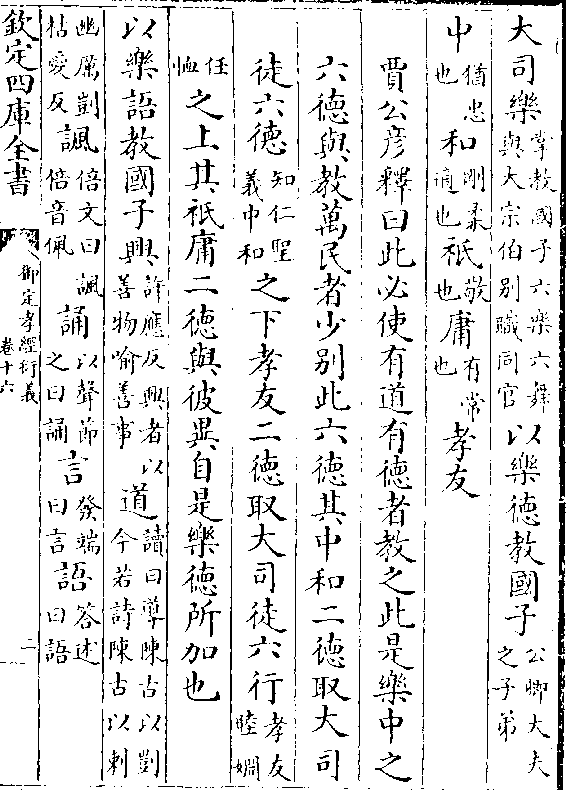 大司樂掌教國子六樂六舞與大宗伯别職同官以樂德教國子公卿大夫之子弟
中猶忠也和剛柔適也祗敬也庸有常也孝友
賈公彦釋曰此必使有道有德者教之此是樂中之
六德與教萬民者少别此六德其中和二德取大司
徒六德知仁聖義中和之下孝友二德取大司徒六行孝友睦婣
任恤之上其祗庸二德與彼異自是樂德所加也
以樂語教國子興許應反興者以善物喻善事道讀曰導陳古以剴今若詩陳古以刺
幽厲剴枯愛反諷倍文曰諷倍音佩誦以聲節之曰誦言發端曰言語答述曰語
欽定四庫全書
御定孝經衍義
卷十六
二